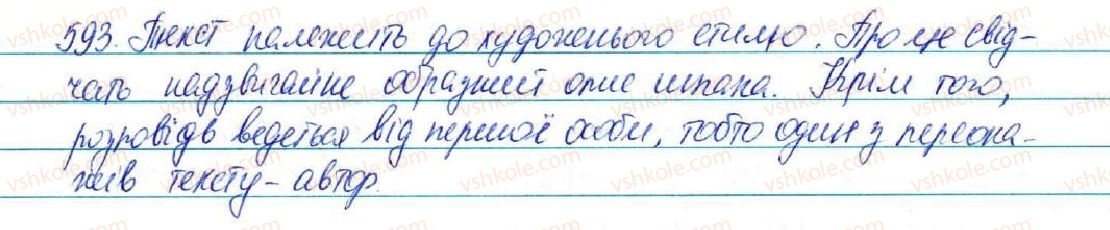 593. Текст належить до художнього стилю. Про це свід-
чать надзвичайно образний опис шпака. Крім того,
розповідь ведеться від першої особи, тобто один з персона-
жів тексту - автор.